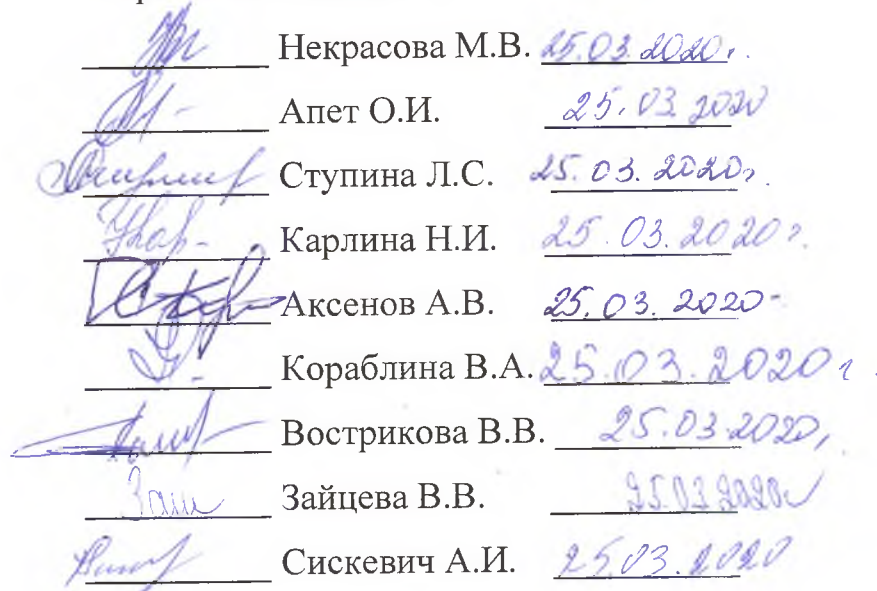 Некрасова М.В. 25.03.2020г.
Апет О.И. 25.03.2020
Ступина Л.С. 25.03.2020г.
Карлина Н.И. 25.03.2020г.
Аксенов А.В. 25.03.2020
Кораблина В.А. 25.03.2020г.
Вострикова В.В. 25.03.2020
Зайцева В.В. 25.03.2020г
Сискевич А.И. 25.03.2020